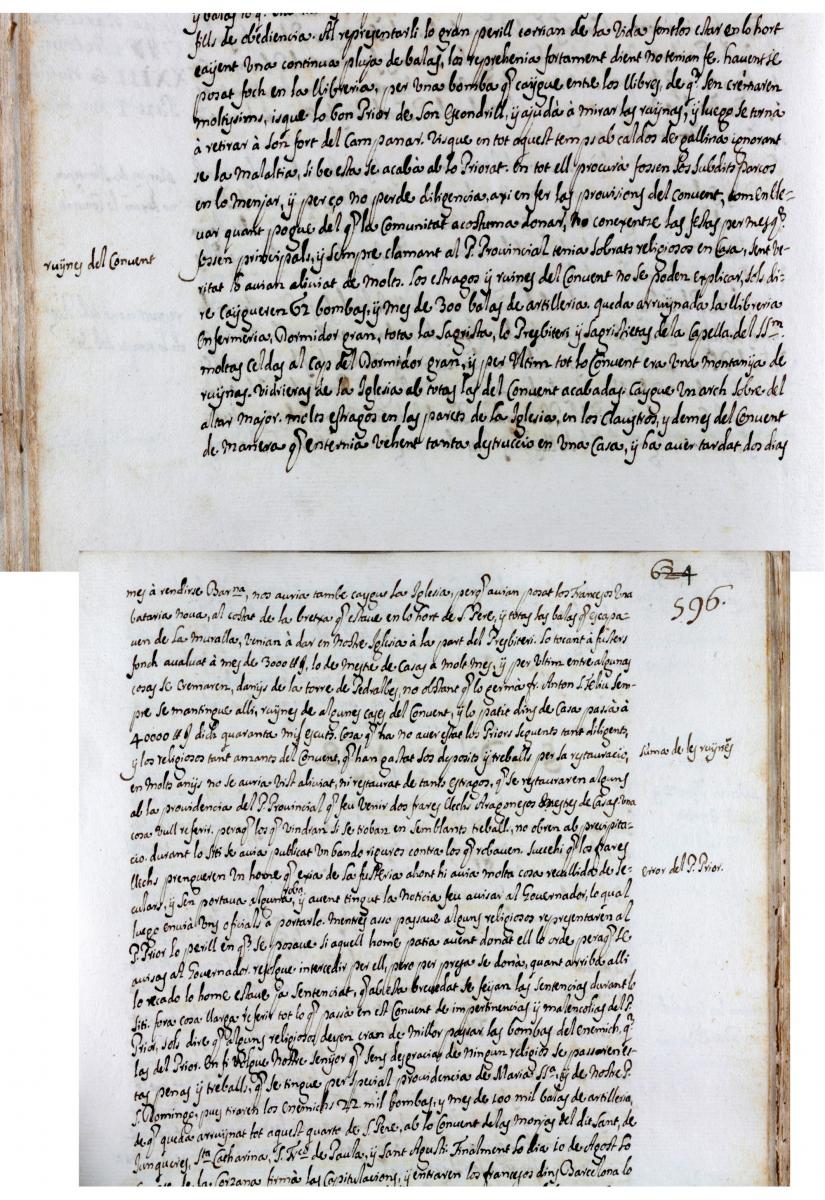 fills de obediencia. Al representarli lo gran perill corrian de la Vida fentlos estar en lo hort
caÿent Una continua pluja de balas, los reprehenia fortament dient no tenian fe. havent se
posat foch en la llibreria, per una bomba q̃ caÿgue entre los llibres, de q̃ sen cremaren
moltÿsims, isque lo bon Prior de son Escondrill, ÿ ajudà à mirar las ruÿnas, ÿ luego se tornà
à retirar à son fort del Campanar. Visque en tot aquest temps ab caldos de gallina ignorant
se la Malaltia, si be esta se acabà ab lo Priorat. En tot ell procurà fossen los subdits parcos
en lo menjar, ÿ per ço no perde diligencia, axi en fer las provisions del convent, com en lle-
var quant pogue del q̃ la Comunitat acostuma donar, no conexentse las festas per mes q̃
fossen principals, ÿ sempre clamant al P. Provincial tenia sobrats religiosos en Casa, sent ve-
ruÿnes del Convent
ritat avian aliviat de molts. Los estragos ÿ ruines del Convent no se poden explicar, sols di-
re caÿgueren 62 bombas, ÿ mes de 300 balas de artilleria. queda arruÿnada la llibreria
Enfermeria, Dormidor gran, tota la Sagristia, lo Presbiteri ÿ sagristietas de la Capella del SSm.
moltas Celdas al Cap del Dormidor gran, ÿ per Ultim tot lo Convent era Una montanÿa de
ruÿnas. Vidrieras de la Iglesia ab totas las del Convent acabadas. Caÿgue Un arch sobre del
altar major. molts estragos en las parets de la Iglesia, en los Claustros, ÿ demes del Convent
de manera q̃ enternia vehent tanta destruccio en Una Casa, ÿ ha aver tardat dos dias
624
596.
mes à rendirse Barna, nos auria tambe caÿgut la Iglesia, perq̃ avian posat los Francesos Una
bataria nova, al costat de la bretxa q̃ estave en lo hort de S. Pere, ÿ totas las balas q̃ escapa-
ven de la Muralla, venian à dar en Nostre Iglesia à la part del Presbiteri. Lo tocant à fusters
fonch avaluat à mes de 3000 ll, lo de Mestre de Casas à molt mes, ÿ per Ultim entre algunas
cosas se Cremaren, danÿs de la torre de Pedralbes, no obstant q̃ lo germà fr. Anton sem-
pre se mantingue alli, ruÿnes de algunes cases del Convent, ÿ lo patit dins de Casa passà à
40000 ll dich quaranta mil escuts. Cosa q̃ ha no aver estat los Priors seguents tant diligents,
ÿ los religiosos tant amants del Convent, q̃ han gastat sos deposits ÿ treballs per sa restauracio,
suma de les ruÿnes
en molts anÿs no se auria vist aliviat, ni restaurat de tants estragos, q̃ se restauraren alguns
ab la providencia del P. Provincial q̃ feu venir dos frares llechs Aragonesos Mestres de Casas. Una
cosa vull referir, peraq̃ los q̃ vindran si se troban en semblants treball, no obren ab precipita-
cio. durant lo siti se avia publicat Un bando riguros contra los q̃ robaven. Succehi q̃ los frares
llechs prengueren Un home q̃ exia de la fusteria ahont hi avia molta cosa recullida de se-
error del P. Prior.
culars, ÿ sen portava alguna roba, ÿ avent tingut la Noticia feu avisar al Governador, lo qual
luego envià Uns oficials à portarlo. Mentres asso passave alguns religiosos representaren al
P. Prior lo perill en q̃ se posave si aquell home patia avent donat ell lo orde peraq̃ se
avisas al Governador. resolgue intercedir per ell, pero per presa se donà, quant arribà alli
lo recado lo home estave ja sentenciat, q̃ ab esta brevedat se feÿan las sentencias durant lo
siti. fora cosa llarga referir tot lo q̃ passà en est Convent de impertinencias ÿ malencolias del P.
Prior, sols dire q̃ alguns religiosos deÿen eran de millor passar las bombas del Enemich, q̃
las del Prior. En fi volgue Nostre Senÿor q̃ sens desgracias de ningun religios se passaren es-
tas penas ÿ treball, q̃ se tingue per special providencia de Maria SSa. ÿ de Nostre P.
S. Domingo, pues tiraren los Enemichs 22 mil bombas, ÿ mes de 100 mil balas de artilleria,
de q̃ quedà arruÿnat tot aquest quarto de S. Pere, ab lo Convent de las Monjas del dit Sant, de
Junqueres, Sta Catharina, S. Frco. de Paula, ÿ Sant Agusti. Finalment lo dia 10 de Agost lo
de la Corzana firmà las Capitulacions, ÿ entraren los francesos dins Barcelona lo